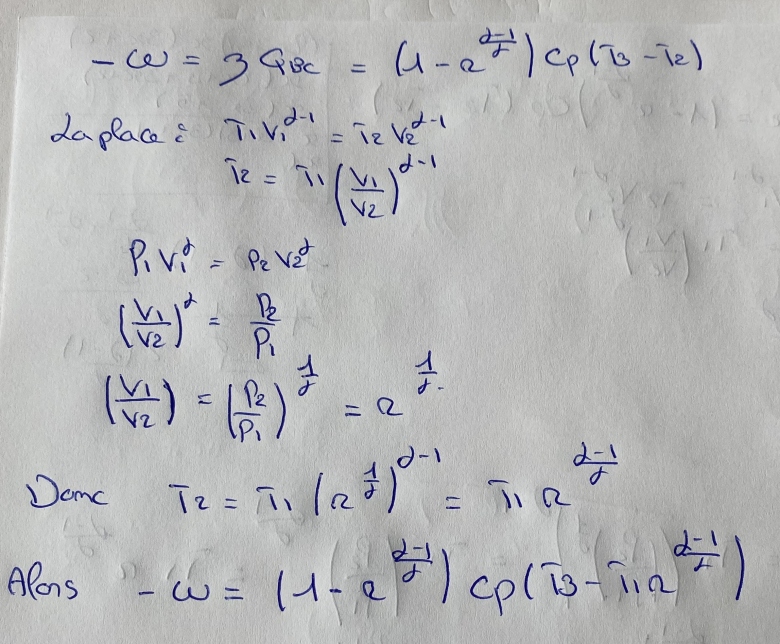 - ω = 3 QBC = (1 - a^(γ-1)/γ) Cp (T3 - T2)
Laplace : T1 V1^γ-1 = T2 V2^γ-1
T2 = T1 (V1/V2)^γ-1
P1 V1^γ = P2 V2^γ
(V1/V2)^γ = P2/P1
(V1/V2) = (P2/P1)^1/γ = a^1/γ.
Donc T2 = T1 (a^1/γ)^γ-1 = T1 a^(γ-1)/γ
Alors - ω = (1 - a^(γ-1)/γ) Cp (T3 - T1 a^(γ-1)/γ)